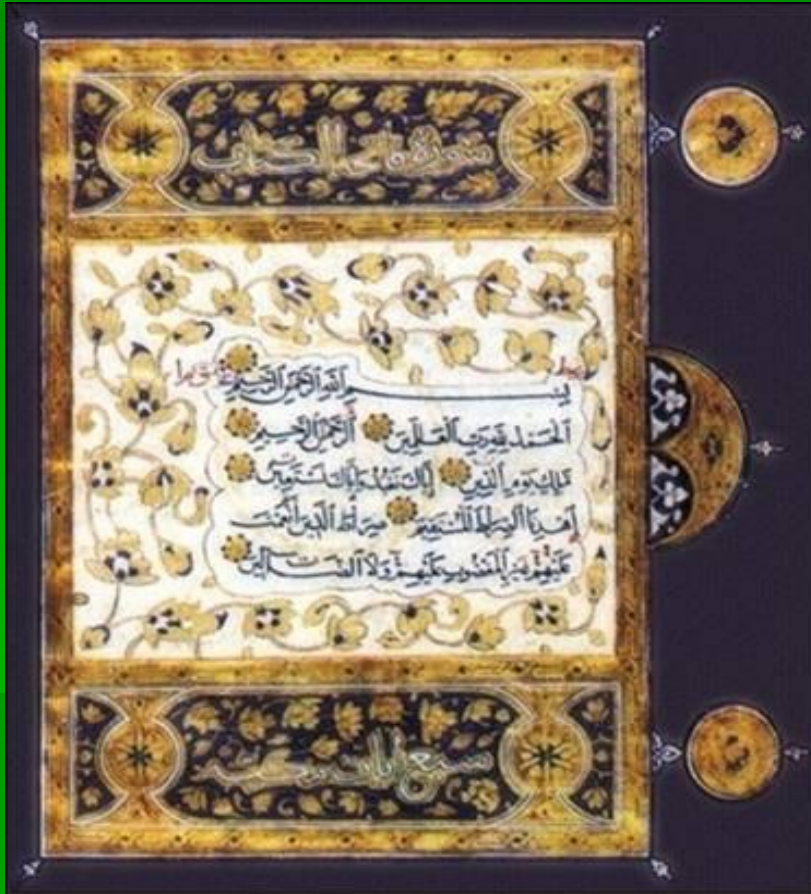 سورة فاتحة الكتاب
بسم الله الرحمن الرحيم
الحمد لله رب العلمين الرحمن الرحيم
ملك يوم الدين إياك نعبد وإياك نستعين
اهدنا الصراط المستقيم صراط الذين أنعمت
عليهم غير المغضوب عليهم ولا الضالين
سبع آيات مكية